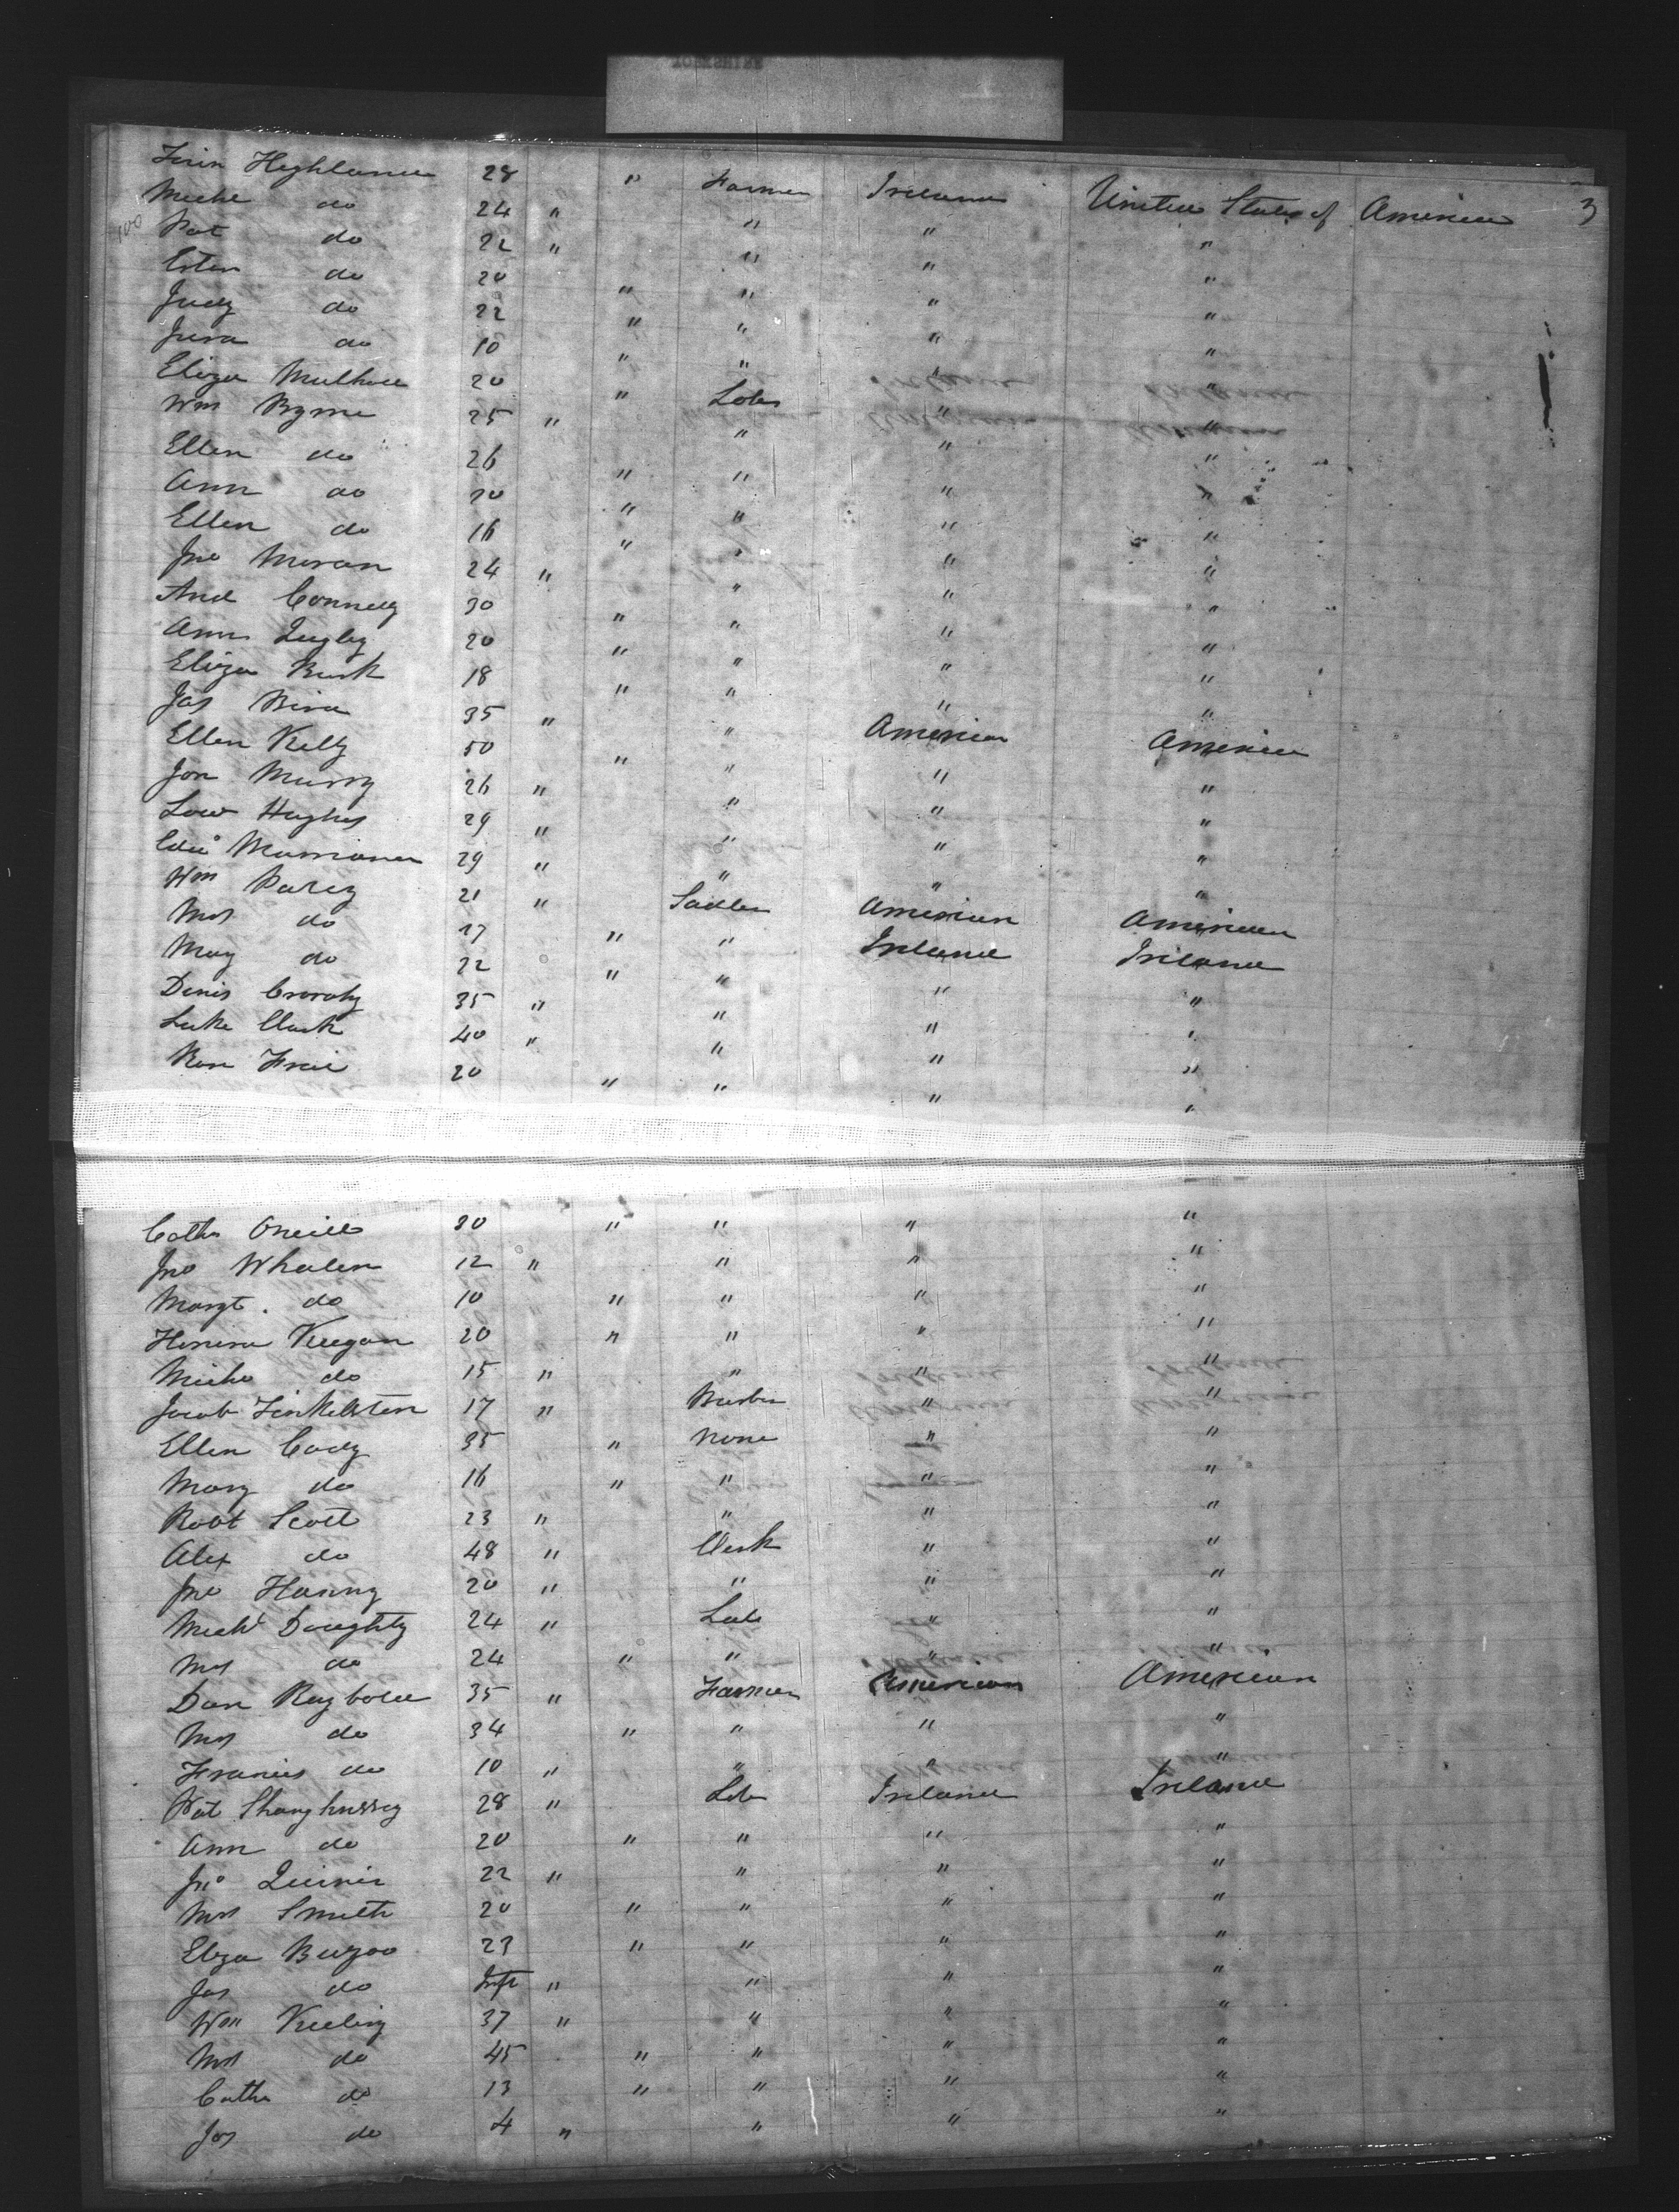 Highland 28 " Farmer Ireland United States of America 3
Miche do 24 " " " "
100 Pat do 22 " " " "
do 20 " " " "
Judy do 22 " " " "
do 10 " " " "
Eliza Mulhall 20 " Lober " "
Wm Byrne 25 " " " "
Ellen do 26 " " " "
Ann do 20 " " " "
Ellen do 16 " " " "
Jno Moran 24 " " " "
And Connelly 30 " " " "
Ann 20 " " " "
Eliza Burk 18 " " " "
Jas 35 " " American America
Ellen Kelly 50 " " " "
Jon Murry 26 " " " "
Low Hughes 29 " " " "
29 " " " "
Wm 21 " Sadler American American
Mrs do 17 " " Ireland Ireland
May do 22 " " " "
Denis 35 " " " "
Luke Clark 40 " " " "
Rose 20 " " " "
Cath ONeill 20 " " " "
Jno Whalen 12 " " " "
Margt. do 10 " " " "
Honora Keegan 20 " " " "
Miche do 15 " " " "
Jacob Finkelsten 17 " Barber " "
Ellen Cody 35 " None " "
Mary do 16 " " " "
Robt Scott 23 " " " "
Alex do 48 " Clerk " "
Jno Hanny 20 " " " "
Michl Doughty 24 " Lab " "
Mrs do 24 " " " "
Dan Raybold 35 " Farmer American American
Mrs do 34 " " " "
Francis do 10 " " " "
Pat Shaughnessy 28 " Lab Ireland Ireland
Ann do 20 " " " "
Jno 22 " " " "
Mrs Smith 20 " " " "
Eliza 23 " " " "
Jas do Inft " " " "
Wm Keeling 37 " " " "
Mrs do 45 " " " "
Cath do 13 " " " "
Jas do 4 " " " "